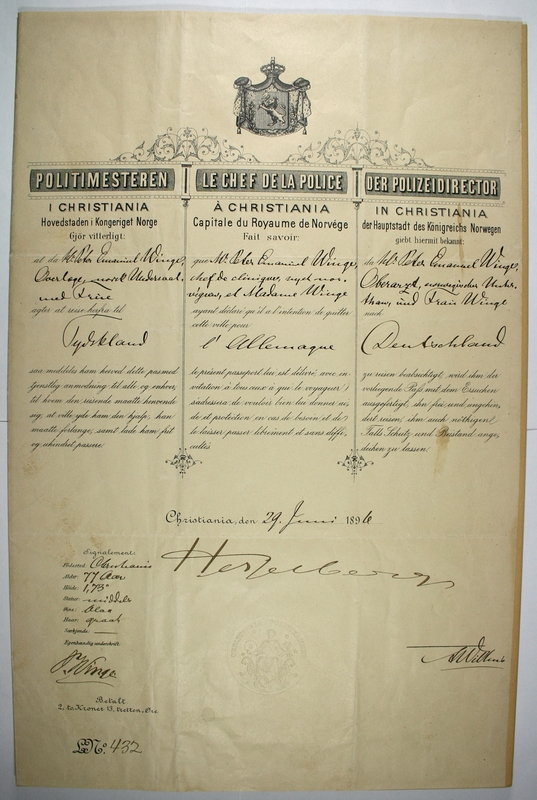 POLITIMESTEREN
I CHRISTIANIA
Hovedstaden i Kongeriget Norge
Gjör vitterligt:
at da Hr Peter Emanuel Winge,
Overlæge, norsk Undersaat,
med Frue
agter at reise herfra til
Tydskland
saa meddeles ham herved dette pas med
tjenstlig anmodning til alle og enhver,
til hvem den reisende maatte henvende
sig, at ville yde ham den hjelp, han
maatte forlange, samt lade ham frit
og uhindret passere.
LE CHEF DE LA POLICE
À CHRISTIANIA
Capitale du Royaume de Norvége
Fait savoir:
que Mr Peter Emanuel Winge,
chef de clinique, sujet nor-
végien, et Madame Winge
ayant déclaré qu'il a l'intention de quitter
cette ville pour
l'Allemagne
le présent passeport lui est délivré, avec in-
vitation à tous ceux à qui le voyageur
s'adressera de vouloir bien lui donner ai-
de et protection en cas de besoin et de
le laisser passer librement et sans diffi-
cultés.
DER POLIZEIDIRECTOR
IN CHRISTIANIA
der Hauptstadt des Königreichs Norwegen
giebt hiermit bekannt:
da Hr Peter Emanuel Winge,
Oberarzt, norwegischer Unter-
than, und Frau Winge
nach
Deutschland
zu reisen beabsichtigt, wird ihm der
vorliegende Paß mit dem Ersuchen
ausgefertigt, ihn frei und ungehin-
dert reisen, ihm auch nöthigen
Falls Schutz und Beistand ange-
deihen zu lassen.
Christiania, den 29 Juni 1896
Signalement:
Alder: 77 Aar
Høide: 1,73
middels
blaa
Haar: graat
Særkjende: —
Egenhændig underskrift:
P. Winge
Betalt
2, to Kroner 13, tretten, Øre
LNo. 432